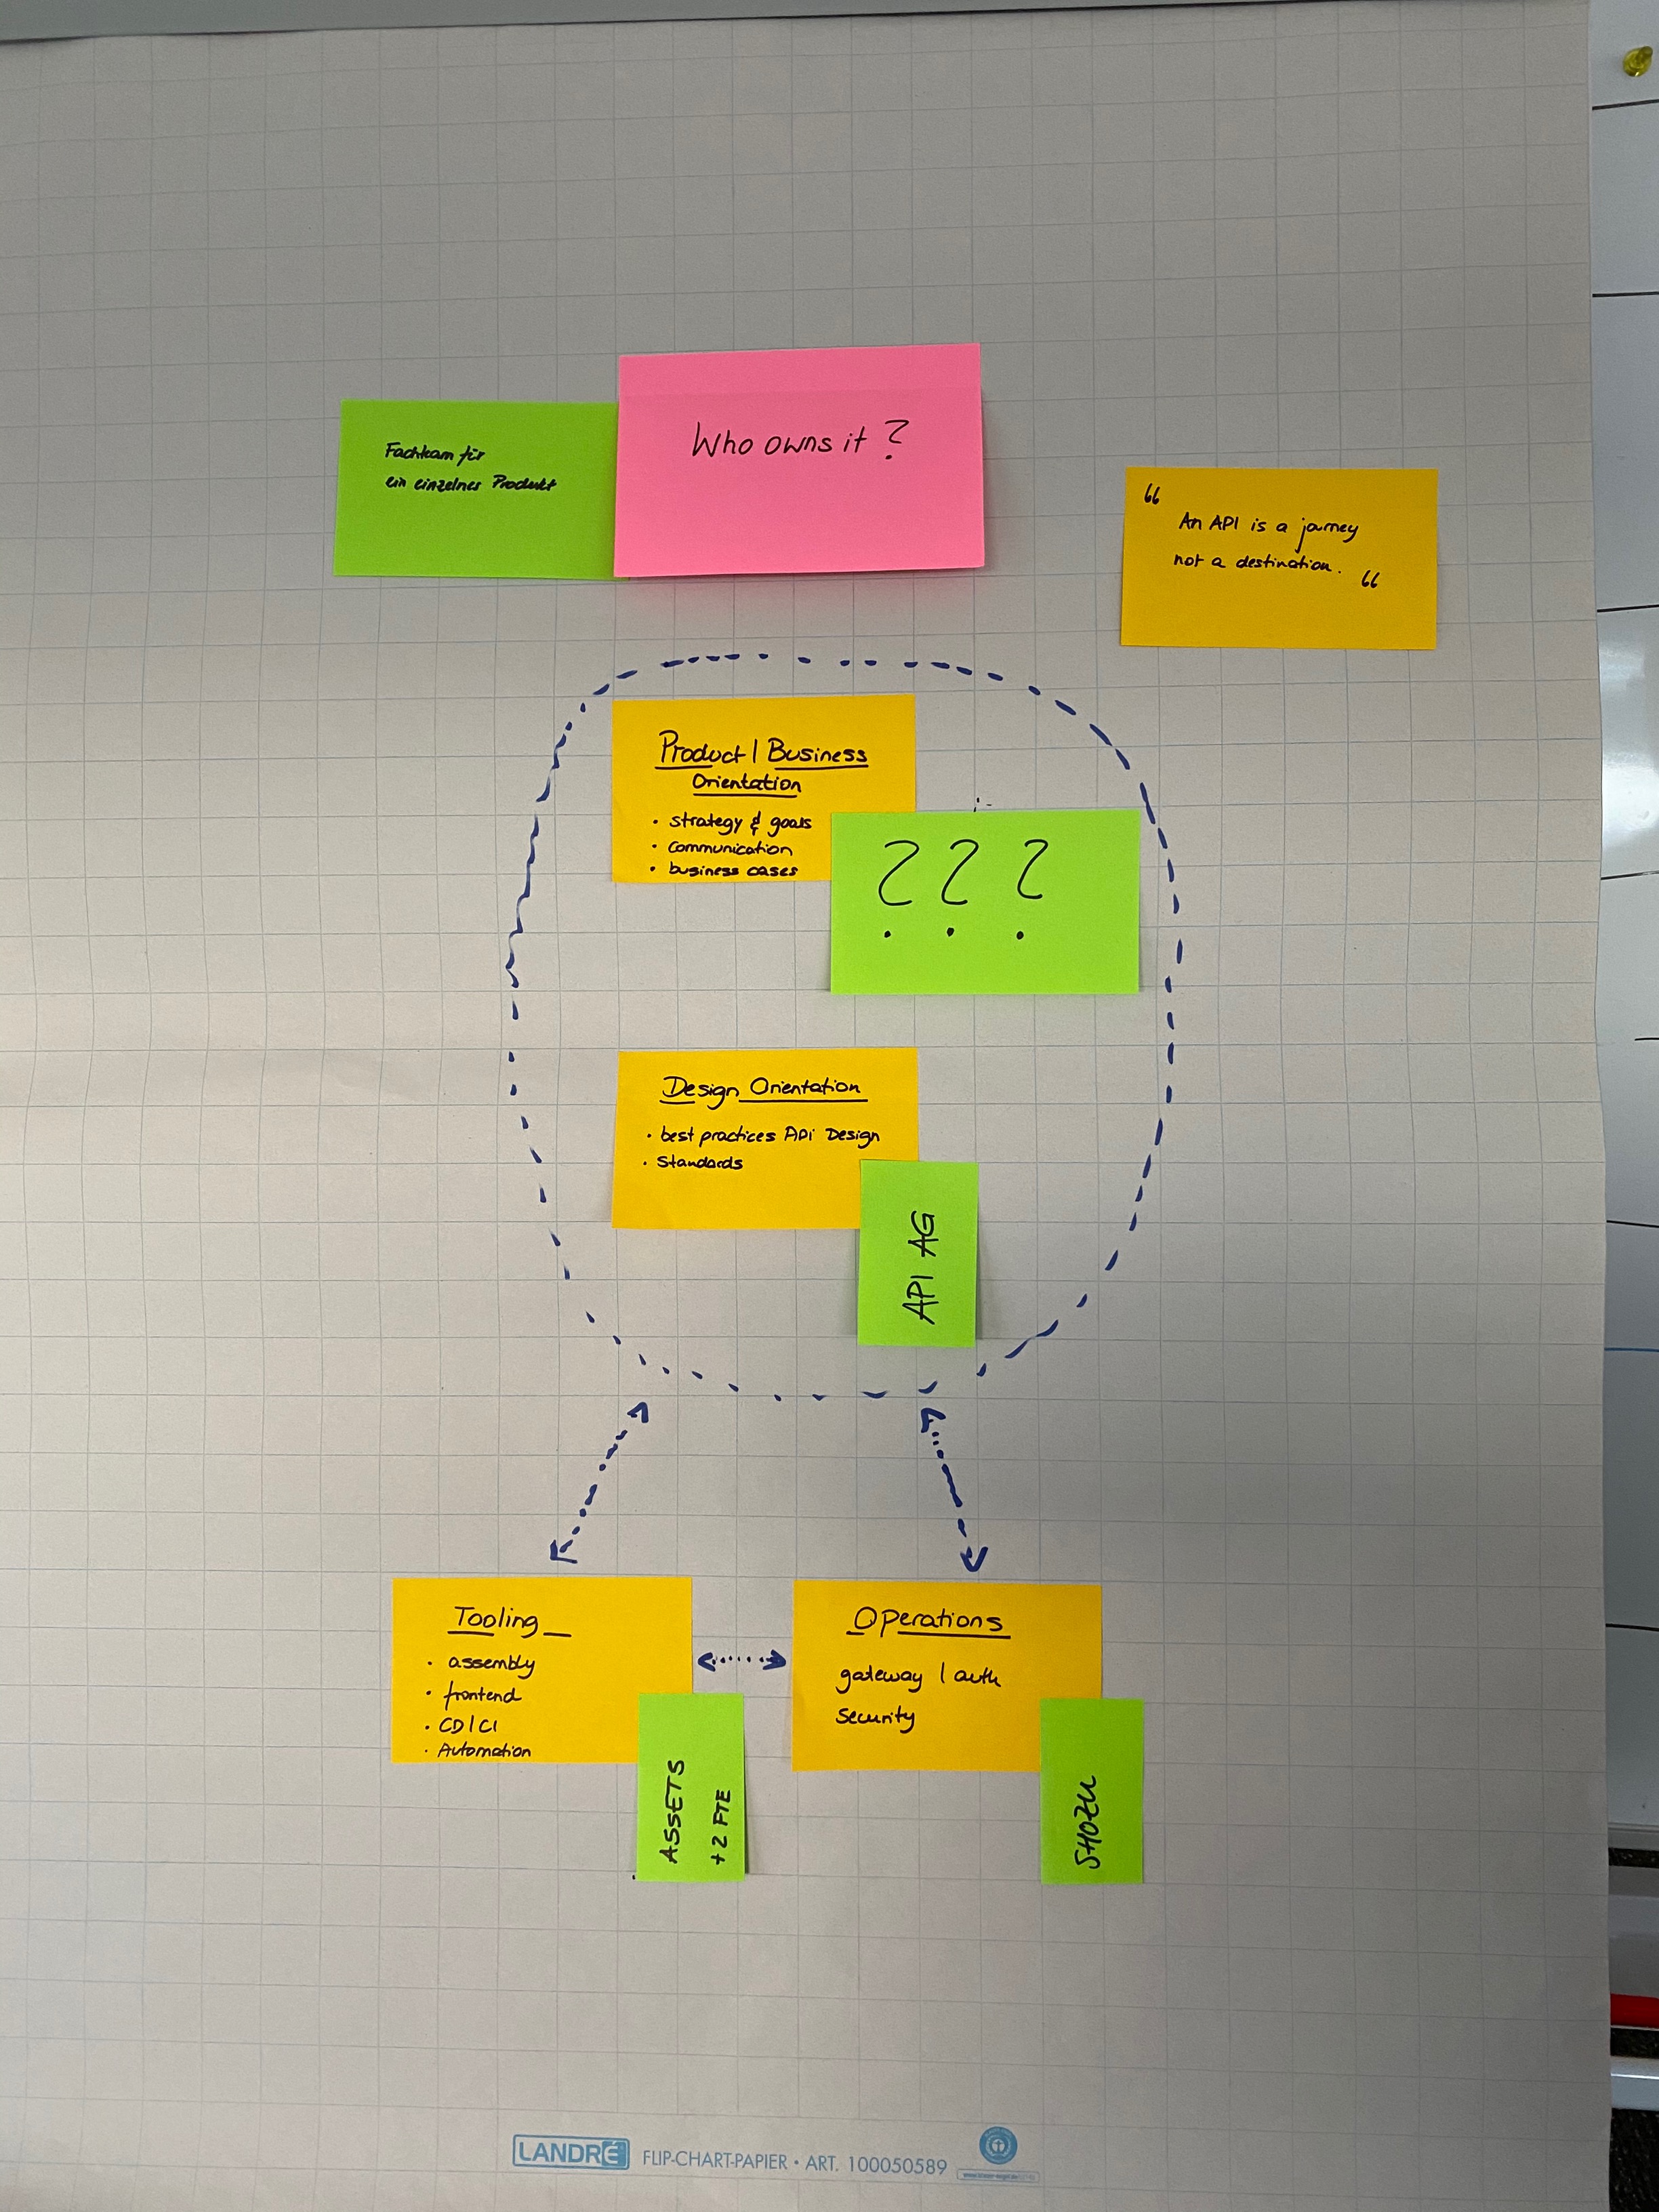 Who owns it ?
Fachteam für
ein einzelnes Produkt
“
An API is a journey
not a destination.
“
Product | Business
Orientation
• strategy & goals
• communication
• business cases
? ? ?
Design Orientation
• best practices API Design
• Standards
API AG
Tooling
• assembly
• frontend
• CD/CI
• Automation
ASSETS
+2 FTE
Operations
gateway | auth
security
SHOZU
LANDRÉ FLIP-CHART-PAPIER • ART. 100050589